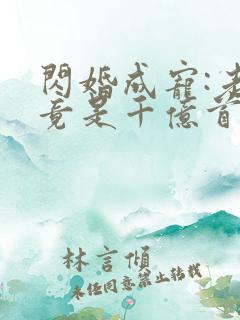 閃婚成寵:老
竟是千億首
林言傾
未經同意禁止轉載